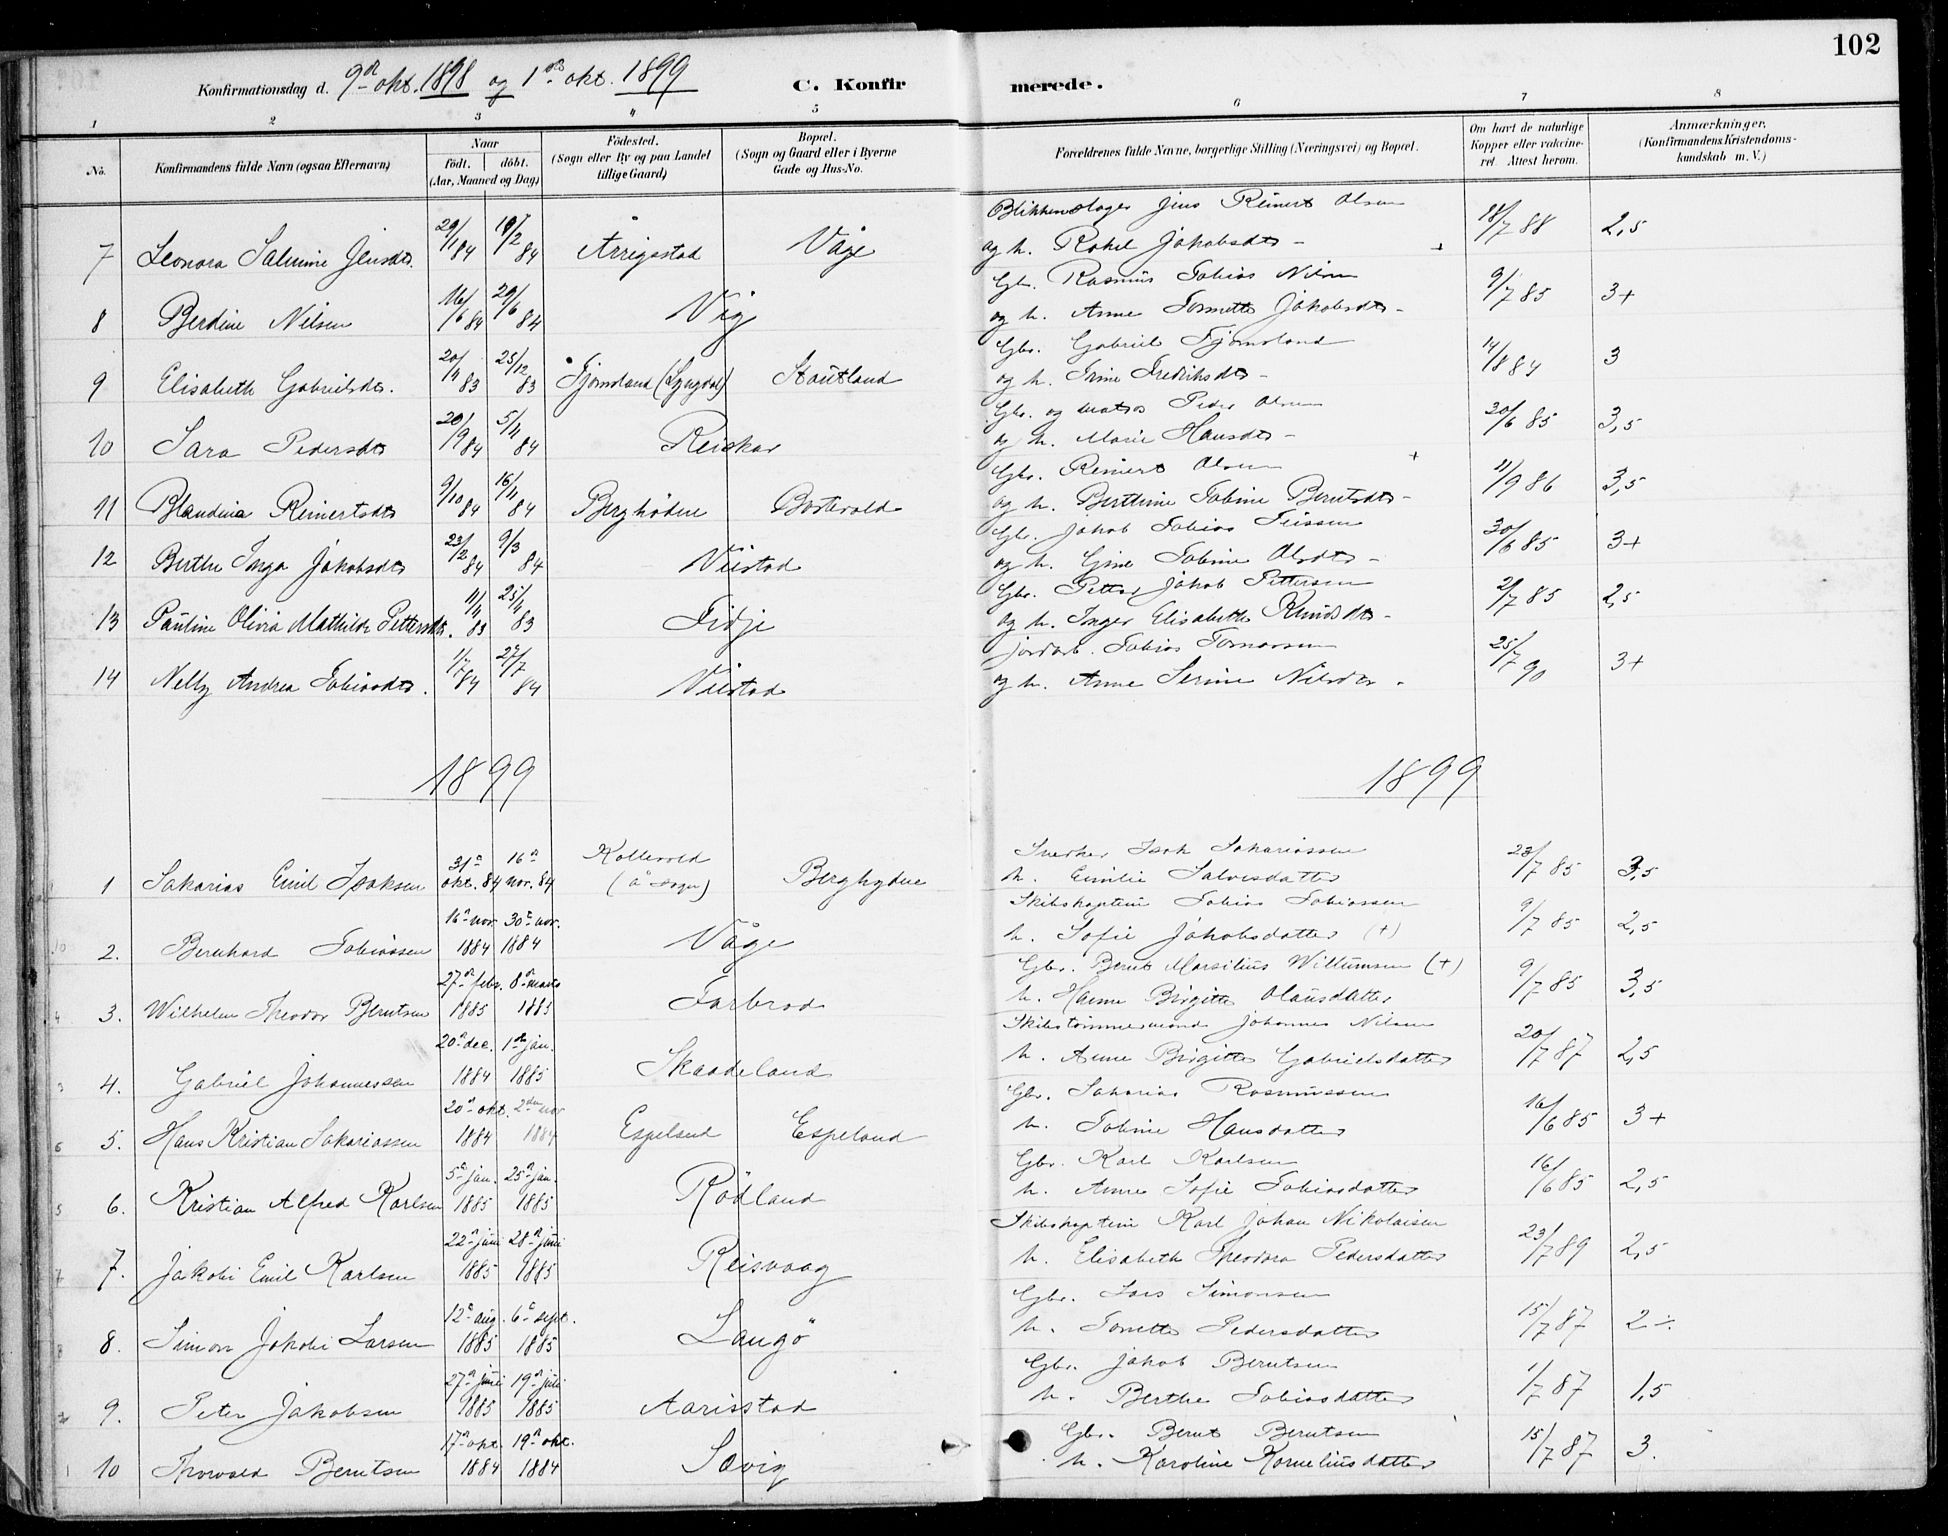 102
Konfirmationsdag d. 9de okt. 1898 og 1ste okt. 1899 C. Konfirmerede.
1 2 3 4 5 6 7 8
No. Konfirmandens fulde Navn (ogsaa Efternavn) Naar født. døbt. (Aar, Maaned og Dag) Födested. (Sogn eller By og paa Landet tillige Gaard) Bopæl. (Sogn og Gaard eller i Byerne Gade og Hus-No. Forældrenes fulde Navne, borgerlige Stilling (Næringsvei) og Bopæl. Om havt de naturlige Kopper eller vakcineret. Attest herom. Anmærkninger. (Konfirmandens Kristendomskundskab m. V.)
7 Leonora Salmine Jensdtr. 29/1 84 17/2 84 Årrigstad Våge Blikkenslager Jens Reinert Olsen og h. Rakel Jakobsdtr - 18/7 88 2,5
8 Berdine Nilsen 16/6 84 29/6 84 Vig Gbr. Rasmus Tobias Nilsen og h. Anne Tomette Jakobsdtr - 9/7 85 3+
9 Elisabeth Gabrielsdtr. 20/11 83 25/12 83 Fjomsland (Lyngdal) Stautland Gbr. Gabriel Fjomsland og h. Trine Fredriksdtr - 14/8 84 3
10 Sara Pedersdtr 20/9 84 5/11 84 Reiskar Gbr. og matros Peder Olsen og h. Marie Hansdtr - 20/6 85 3,5
11 Blandina Reinertsdtr 9/10 84 16/11 84 Berghödne Bortevold Gbr. Reinert Olsen + og h. Berthine Tobine Berntsdtr - 11/9 86 3,5
12 Berthe Inga Jakobsdtr 23/2 84 9/3 84 Viistad Gbr. Jakob Tobias Teissen og h. Gine Tobine Olsdtr - 30/6 85 3+
13 Pauline Olivia Mathilde Pettersdtr. 11/11 83 25/11 83 Fidje Gbr. Petter Jakob Pettersen og h. Inger Elisabeth Knudsdtr - 2/7 85 2,5
14 Nelly Andrea Tobiasdtr. 1/7 84 27/7 84 Viistad jordarb. Tobias Tomassen og h. Anne Serine Nilsdtr - 25/7 90 3+
1899 1899
1 Sakarias Emil Isaksen 31te okt. 84 16de nov. 84 Kollevold (Å sogn) Berghydne Snedker Isak Sakariassen h. Emilie Salvesdatter 23/7 85 3,5
2. Bernhard Tobiassen 16de nov. 1884 30te nov. 1884 Våge Skibskaptein Tobias Tobiassen h. Sofie Jakobsdatter (+) 9/7 85 2,5
3. Wilhelm Theodor Berntsen 27de febr. 1885 8de marts 1885 Farbrod Gbr. Bernt Marsilius Willumsen (+) h. Hanne Birgitte Olausdatter 9/7 85 3,5
4. Gabriel Johannessen 20de dec. 1884 1ste jan. 1885 Skaadeland Skibstømmermand Johannes Nilsen h. Anne Birgitte Gabrielsdatter 20/7 87 2,5
5. Hans Kristian Sakariassen 20de okt. 1884 2den nov 1884 Espeland Espeland Gbr. Sakarias Rasmussen h. Tobine Hansdatter 16/6 85 3+
6. Kristian Alfred Karlsen 5te jan. 1885 25de jan. 1885 Rödland Gbr. Karl Karlsen h. Anne Sofie Tobiasdatter 16/6 85 2,5
7. Jakobi Emil Karlsen 22de juni 1885 28de juni 1885 Reisvaag Skibskaptein Karl Johan Nikolaisen h. Elisabeth Theodora Pedersdatter 23/7 89 2,5
8. Simon Jakobi Larsen 12te aug. 1885 6te sept. 1885 Langö Gbr. Lars Simonsen h. Tonette Pedersdatter 15/7 87 2÷
9. Peter Jakobsen 27de juni 1885 19de juli 1885 Aarisstad Gbr. Jakob Berntsen h. Berthe Tobiasdatter 1/7 87 1,5
10 Thorvald Berntsen 17de okt. 1884 19de okt. 1884 Savig Gbr. Bernt Berntsen h. Karoline Korneliusdatter 15/7 87 3.